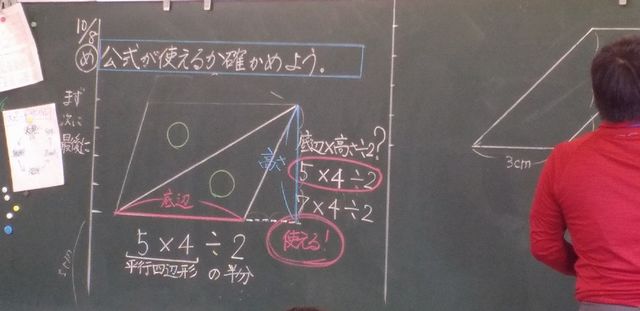 10/8
め 公式が使えるか確かめよう。
まず
次に
最後に
高さ
底辺
底辺×高さ÷2?
5×4÷2
7×4÷2
使える!
5×4÷2
平行四辺形の半分
3cm